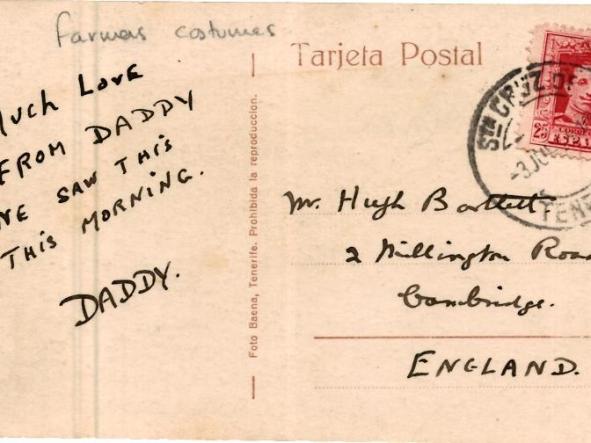 Farmers costumes
Tarjeta Postal
Much LOVE
FROM DADDY
WE SAW THIS
THIS MORNING.
DADDY.
Foto Baena, Tenerife. Prohibida la reproduccion.
Mr. Hugh Bartlett
2 Millington Road
Cambridge.
ENGLAND.
STA CRUZ DE
TENE
25
ESPAÑA